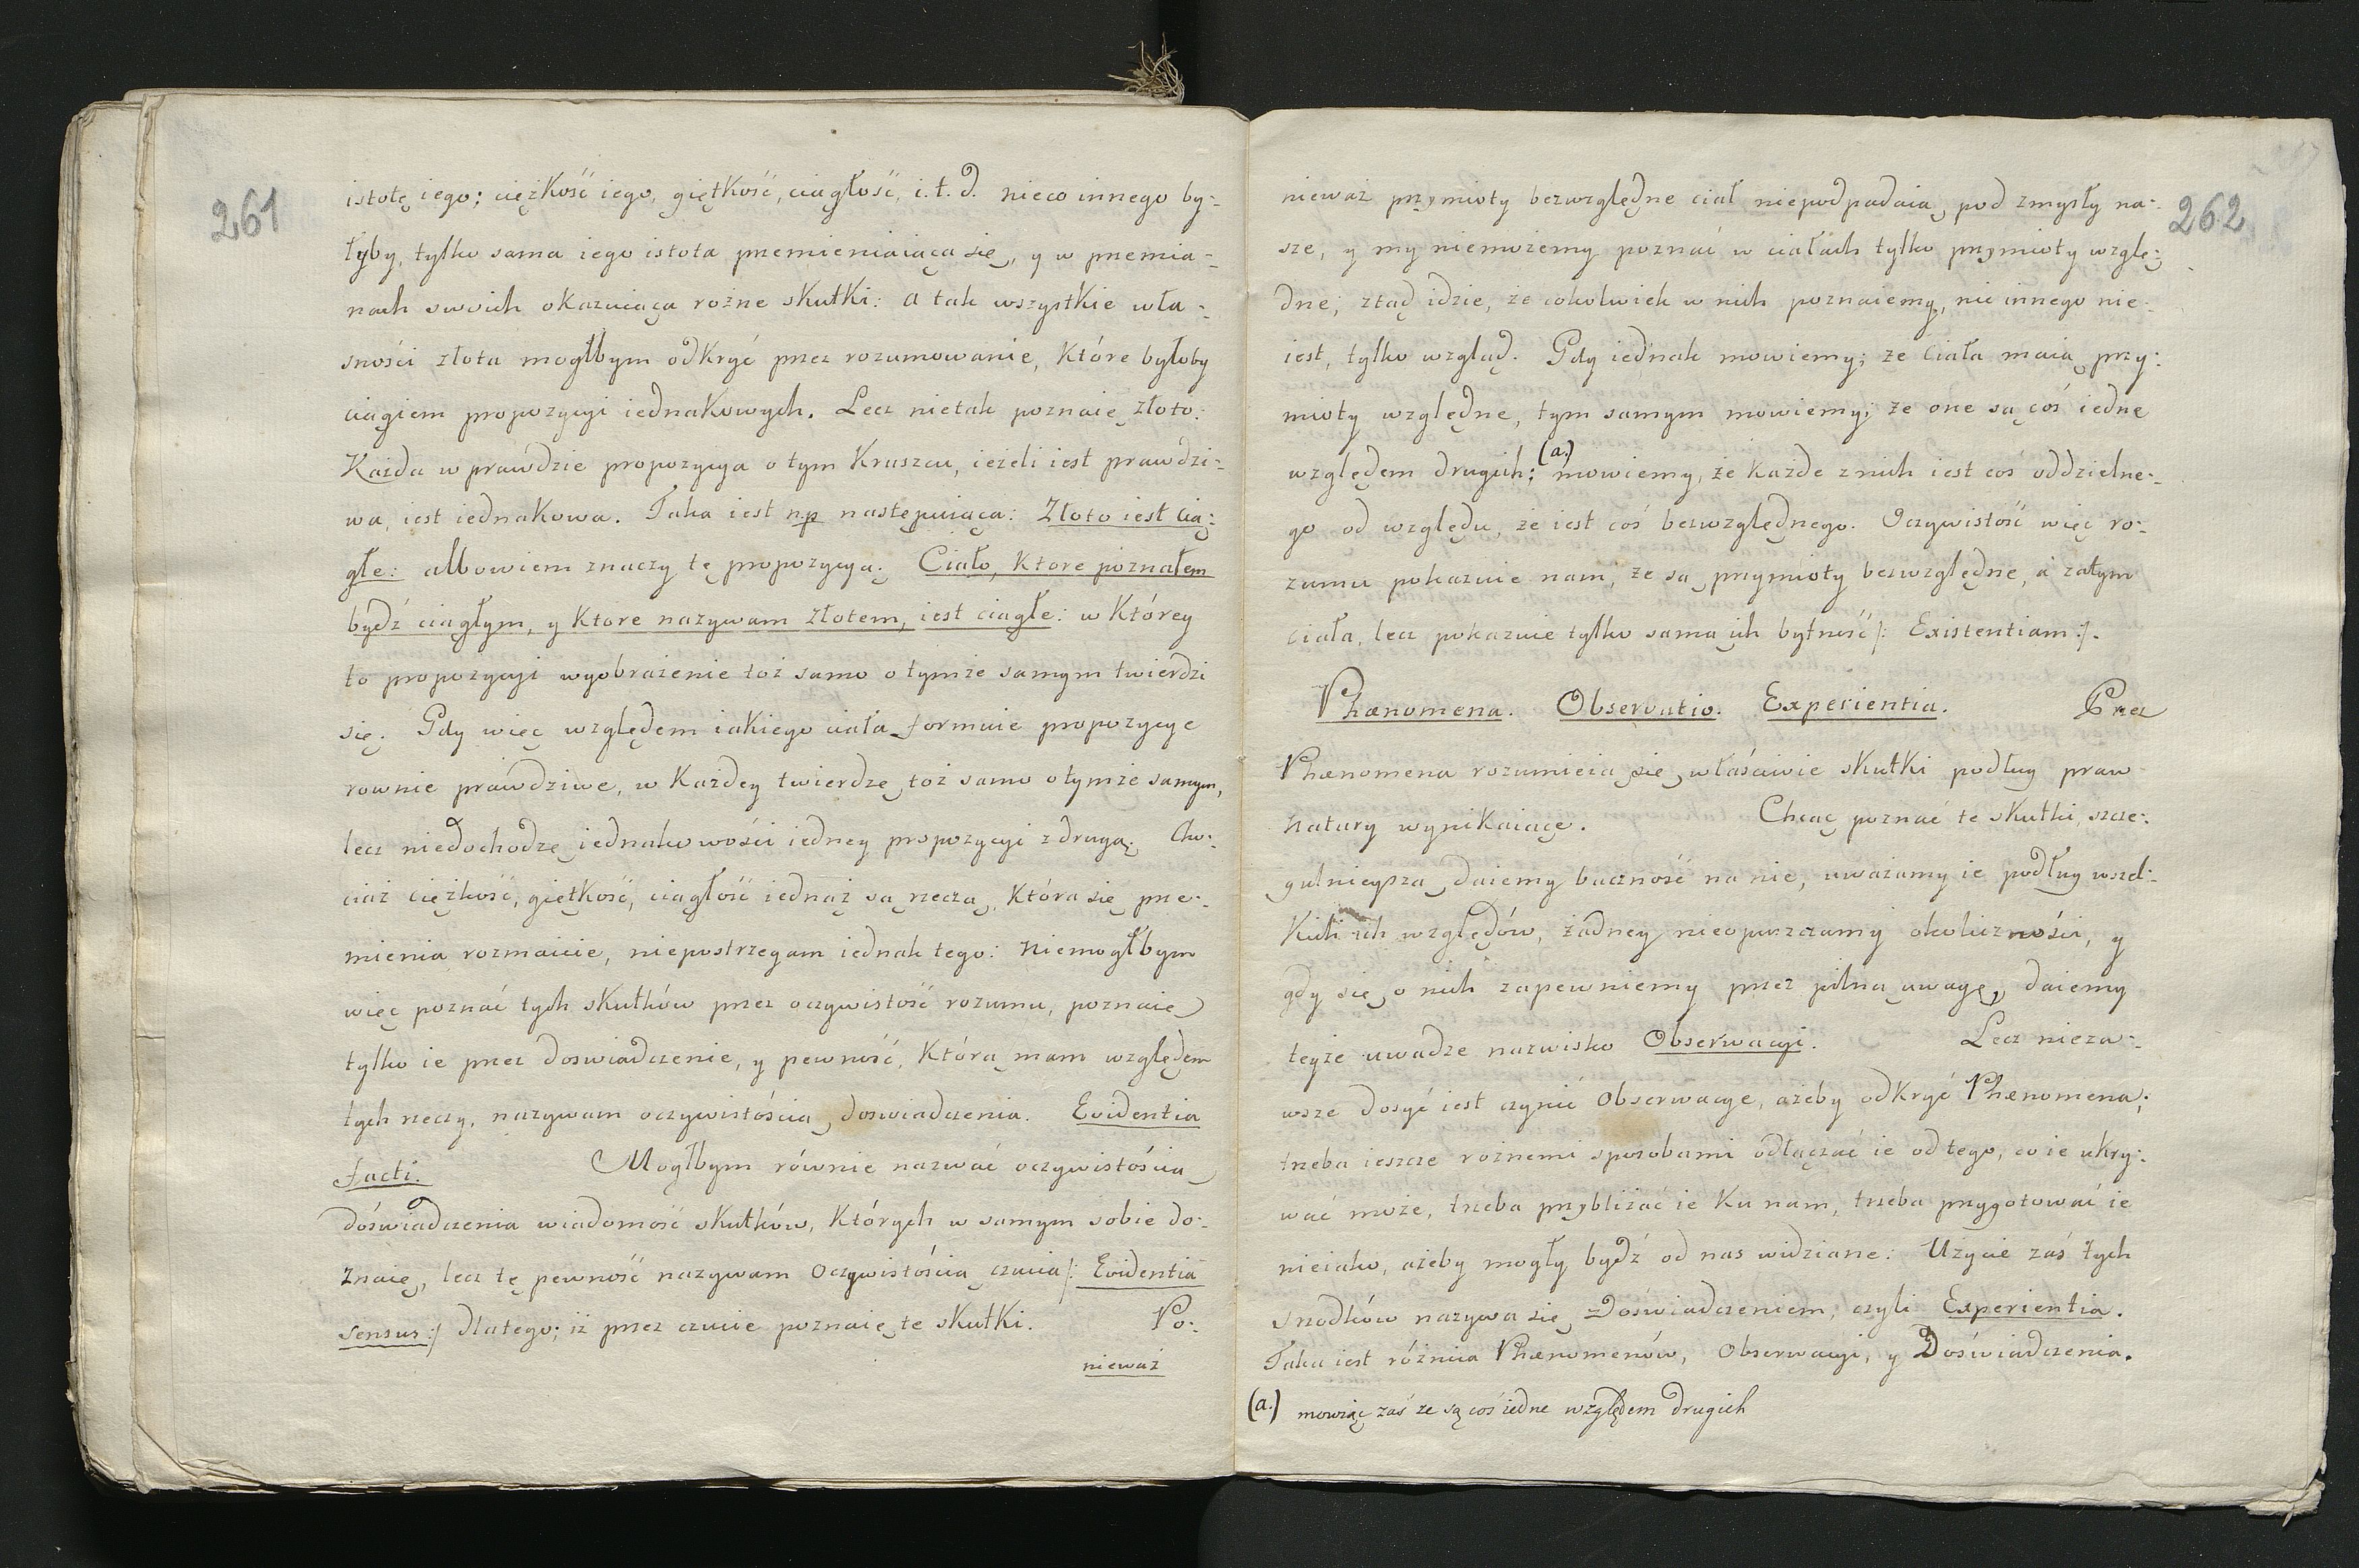 261
istotę iego; ciężkość iego, giętkość, ciągłość, i.t.d. nieco innego by-
łyby, tylko sama iego istota przemieniaiąca się, y w przemia-
nach swoich okazuiąca rożne skutki: a tak wszystkie wła-
sności złota mogłbym odkryć przez rozumowanie, które byłoby
ciągiem propozycyi iednakowych. Lecz nietak poznaię złoto:
Każda w prawdzie propozycya o tym kruszcu, ieżeli iest prawdzi-
wa, iest iednakowa. Taka iest n.p następuiąca: Złoto iest cią-
głe: albowiem znaczy tę propozycyą: Ciało, ktore poznałem
bydź ciągłym, y ktore nazywam złotem, iest ciągłe: w którey
to propozycyi wyobrażenie toż samo o tymże samym twierdzi
się. Gdy więc względem iakiego ciała formuię propozycye
rownie prawdziwe, w każdey twierdzę toż samo o tymże samym,
lecz niedochodzę iednakowości iedney propozycyi z drugą. Cho-
ciaż ciężkość, giętkość, ciągłość iednąż są rzeczą, która się prze-
mienia rozmaicie, niepostrzegam iednak tego: niemogłbym
więc poznać tych skutków przez oczywistość rozumu, poznaię
tylko ie przez doswiadczenie, y pewność, którą mam względem
tych rzeczy, nazywam oczywistością doswiadczenia. Evidentia
facti. Mogłbym równie nazwać oczywistością
doświadczenia wiadomość skutków, których w samym sobie do-
znaię, lecz tę pewność nazywam Oczywistością czucia /: Evidentia
sensus :/ dlatego; iż przez czucie poznaię te skutki. Po-
nieważ
262
nieważ przymioty bezwzględne ciał niepodpadaią pod zmysły na-
sze, y my niemożemy poznać w ciałach tylko przymioty wzglę-
dne; ztąd idzie, że cokolwiek w nich poznaiemy, nic innego nie-
iest, tylko wzgląd. Gdy iednak mowiemy; że Ciała maią przy-
mioty względne, tym samym mowiemy; że one są coś iedne
względem drugich; (a.) mowiemy, że każde z nich iest coś oddzielne-
go od względu, że iest coś bezwzględnego. Oczywistość więc ro-
zumu pokazuie nam, że są przymioty bezwzględne, a zatym
Ciała, lecz pokazuie tylko samą ich bytność /: Existentiam :/.
Phænomena. Observatio. Experientia. Przez
Phænomena rozumieią się właściwie skutki podług praw
natury wynikaiące. Chcąc poznać te skutki, szcze-
gulnieyszą daiemy baczność na nie, uważamy ie podług wszel-
kich ich względów, żadney nieopuszczamy okoliczności, y
gdy się o nich zapewniemy przez pilną uwagę, daiemy
teyże uwadze nazwisko Obserwacyi. Lecz nieza-
wsze dosyć iest czynić Obserwacye, ażeby odkryć Phænomena;
trzeba ieszcze rożnemi sposobami odłączać ie od tego, co ie ukry-
wać może, trzeba przybliżać ie ku nam, trzeba przygotować ie
nieiako, ażeby mogły bydź od nas widziane: Użycie zaś tych
srzodków nazywa się Doświadczeniem, czyli Experientia.
Taka iest różnica Phænomenów, Obserwacyi, y Doświadczenia.
(a.) mowiąc zaś że są coś iedne względem drugich